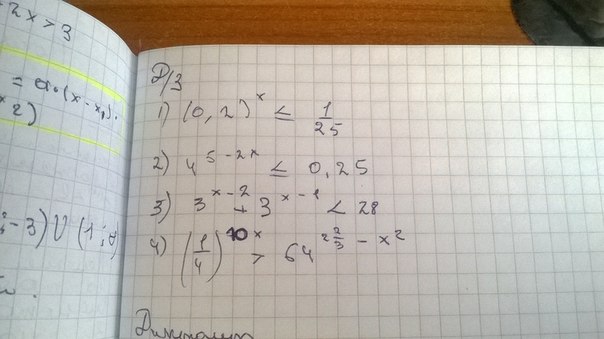 2x > 3
= a·(x-x₁)·
x2)
-3) ∪ (1;
Д/3
1) (0,2)^x ≤ 1/25
2) 4^(5-2x) ≤ 0,25
3) 3^(x-2) + 3^(x-1) < 28
4) (1/4)^(10x) > 64^(2 2/3 - x²)